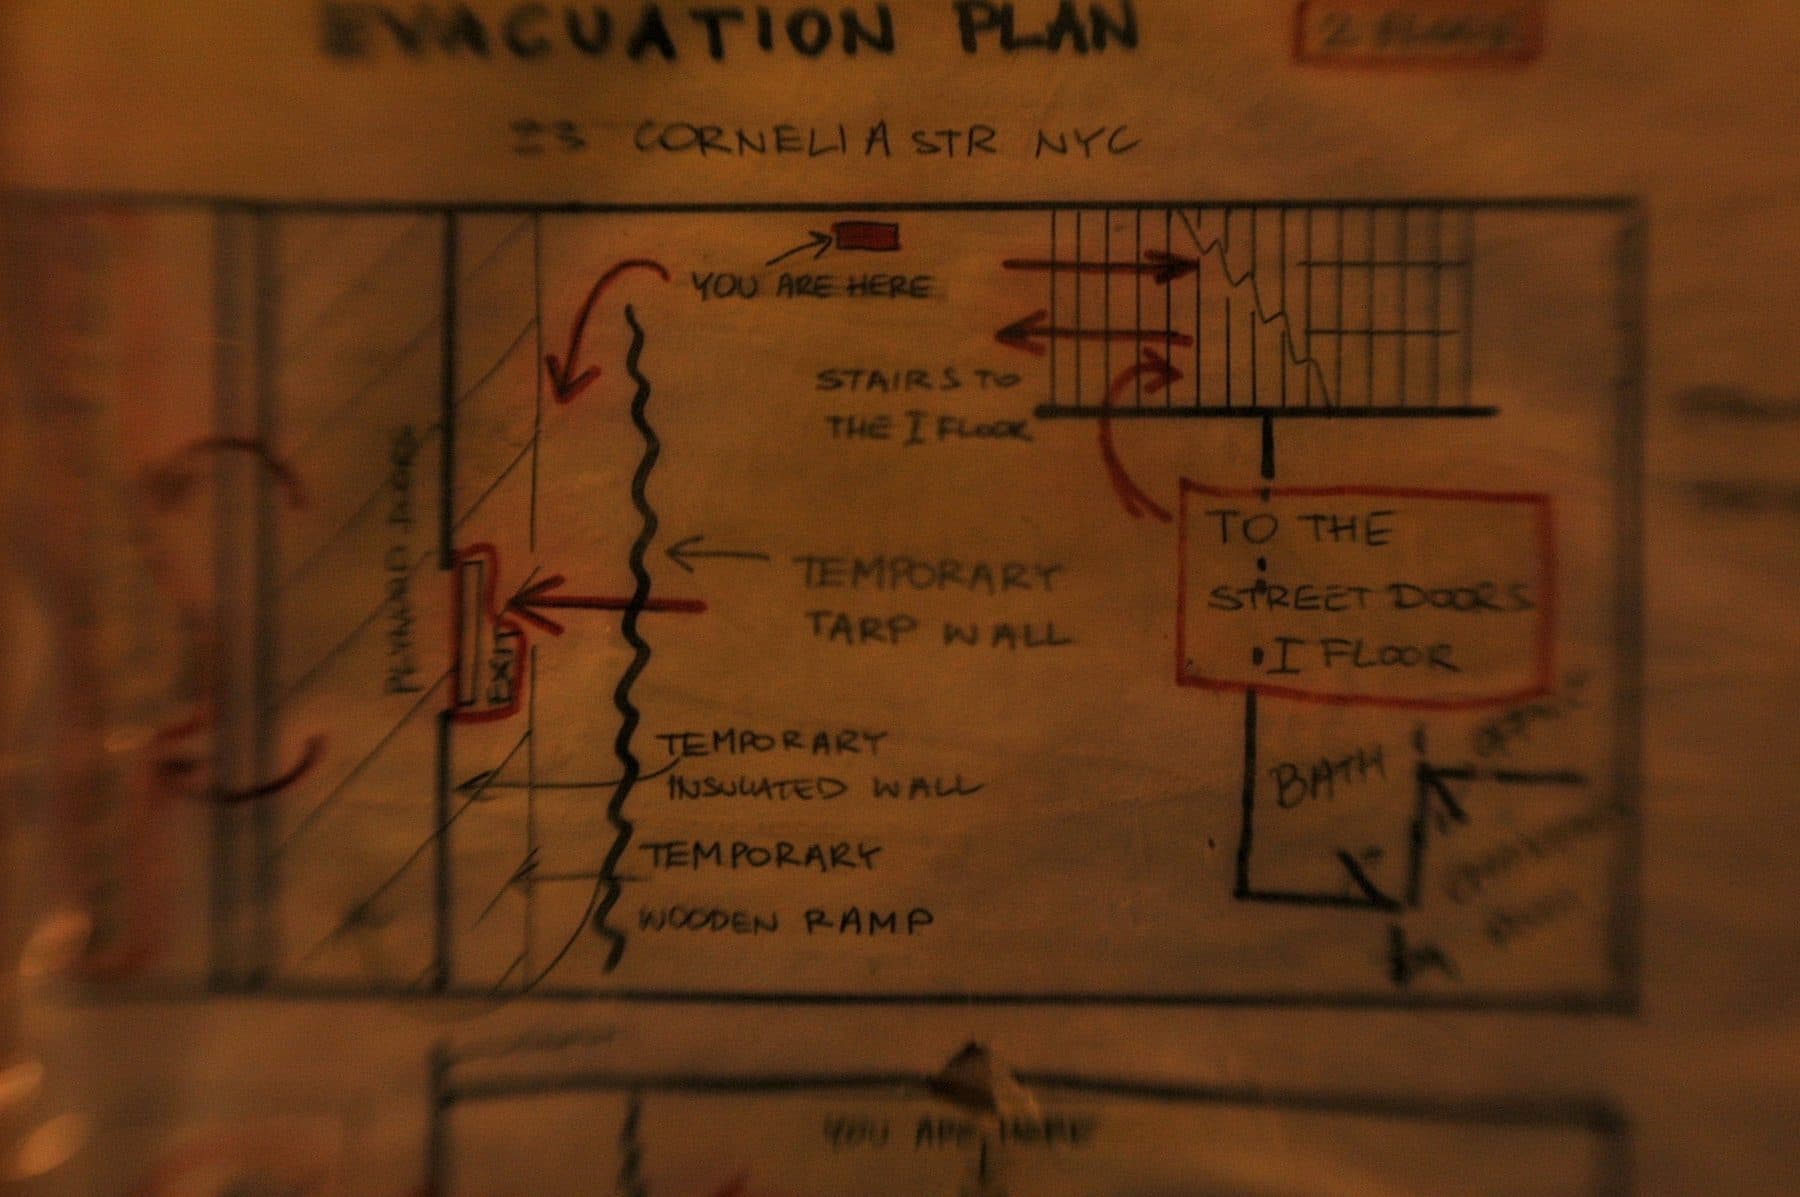 EVACUATION PLAN
2 FLOOR
23 CORNELIA STR NYC
YOU ARE HERE
STAIRS TO
THE I FLOOR
PLYWOOD DOORS
EXIT
TEMPORARY
TARP WALL
TO THE
STREET DOORS
I FLOOR
TEMPORARY
INSULATED WALL
TEMPORARY
WOODEN RAMP
BATH
OFFICE
YOU ARE HERE